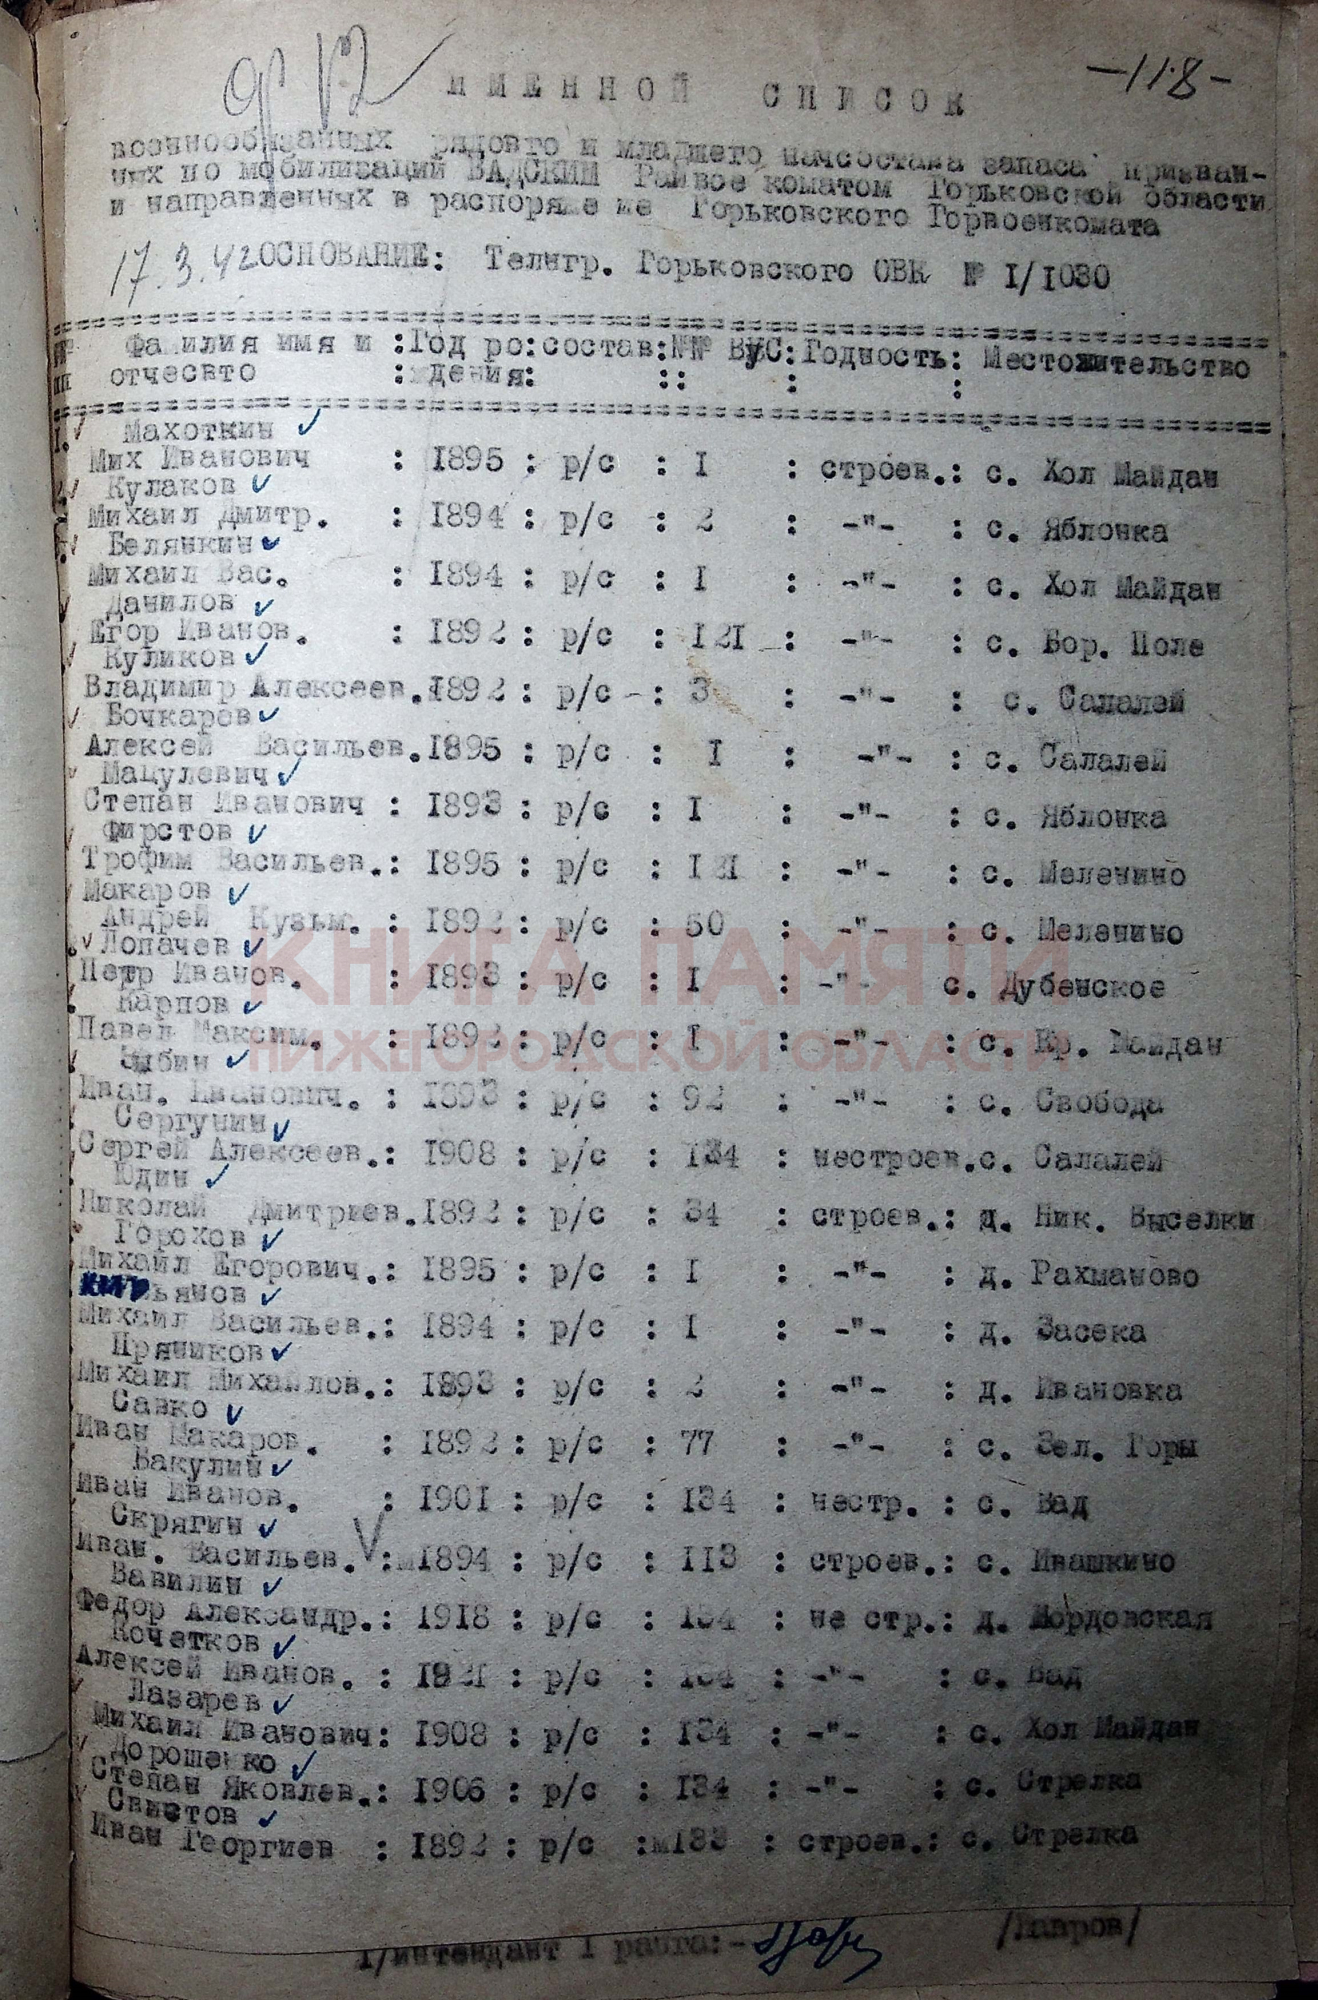 -118-
ИМЕННОЙ СПИСОК
военнообязанных рядовго и младшего начсостава запаса призван-
ных по мобилизаций ВАДСКИМ Райвое коматом Горьковской области
и направленных в распоряже ие Горьковского Горвоенкомата
17.3.42 ОСНОВАНИЕ: Телнгр. Горьковского ОВК № I/I030
№№ Фамилия имя и :Год ро:состав:№№ ВУС:Годность: Местожительство
пп отчесвто :ждения: :: : :
I. Махоткин
Мих Иванович : I895 : р/с : I : строев.: с. Хол Майдан
2. Кулаков
Михаил Дмитр. : I894 : р/с : 2 : -"- : с. Яблонка
Белянкин
Михаил Вас. : I894 : р/с : I : -"- : с. Хол Майдан
Данилов
Егор Иванов. : I892 : р/с : I2I : -"- : с. Бор. Поле
Куликов
Владимир Алексеев. I892 : р/с - : 3 : -"- : с. Салалей
Бочкарев
Алексей Васильев. I895 : р/с : I : -"- : с. Салалей
Мацулевич
Степан Иванович : I893 : р/с : I : -"- : с. Яблонка
Фирстов
Трофим Васильев.: I895 : р/с : I2I : -"- : с. Меленино
Макаров
Андрей Кузьм. : I892 : р/с : 50 : -"- : с. Меленино
Лопачев
Петр Иванов. : I893 : р/с : I : -"- с. Дубенское
Карпов
Павел Максим. : I892 : р/с : I : -"- : с. Кр. Майдан
Зыбин
Иван. Иванович. : I893 : р/с : 92 : -"- : с. Свобода
Сергунин
Сергей Алексеев.: I908 : р/с : I34 : нестроев.с. Салалей
Юдин
Николай Дмитриев. I892 : р/с : 34 : строев.: д. Ник. Выселки
Горохов
Михайл Егорович.: I895 : р/с : I : -"- : д. Рахманово
ьянов
Михаил Васильев.: I894 : р/с : I : -"- : д. Засека
Пряников
Михаил Михайлов.: I893 : р/с : 2 : -"- : д. Ивановка
Савко
Иван Макаров. : I892 : р/с : 77 : -"- : с. Зел. Горы
Бакулин
Иван Иванов. : I90I : р/с : I34 : нестр. : с. Вад
Скрягин
Иван. Васильев. : I894 : р/с : II3 : строев.: с. Ивашкино
Вавилин
Федор Александр.: I9I8 : р/с : I34 : не стр.: д. Мордовская
Кочетков
Алексей Иванов. : I92I : р/с : I34 : -"- : с. Вад
Лазарев
Михаил Иванович: I908 : р/с : I34 : -"- : с. Хол Майдан
Дорошенко
Степан Яковлев.: I906 : р/с : I34 : -"- : с. Стрелка
Свистов
Иван Георгиев : I892 : р/с : I33 : строев.: с. Стрелка
КНИГА ПАМЯТИ
НИЖЕГОРОДСКОЙ ОБЛАСТИ
интендант I ранга:- /Лавров/